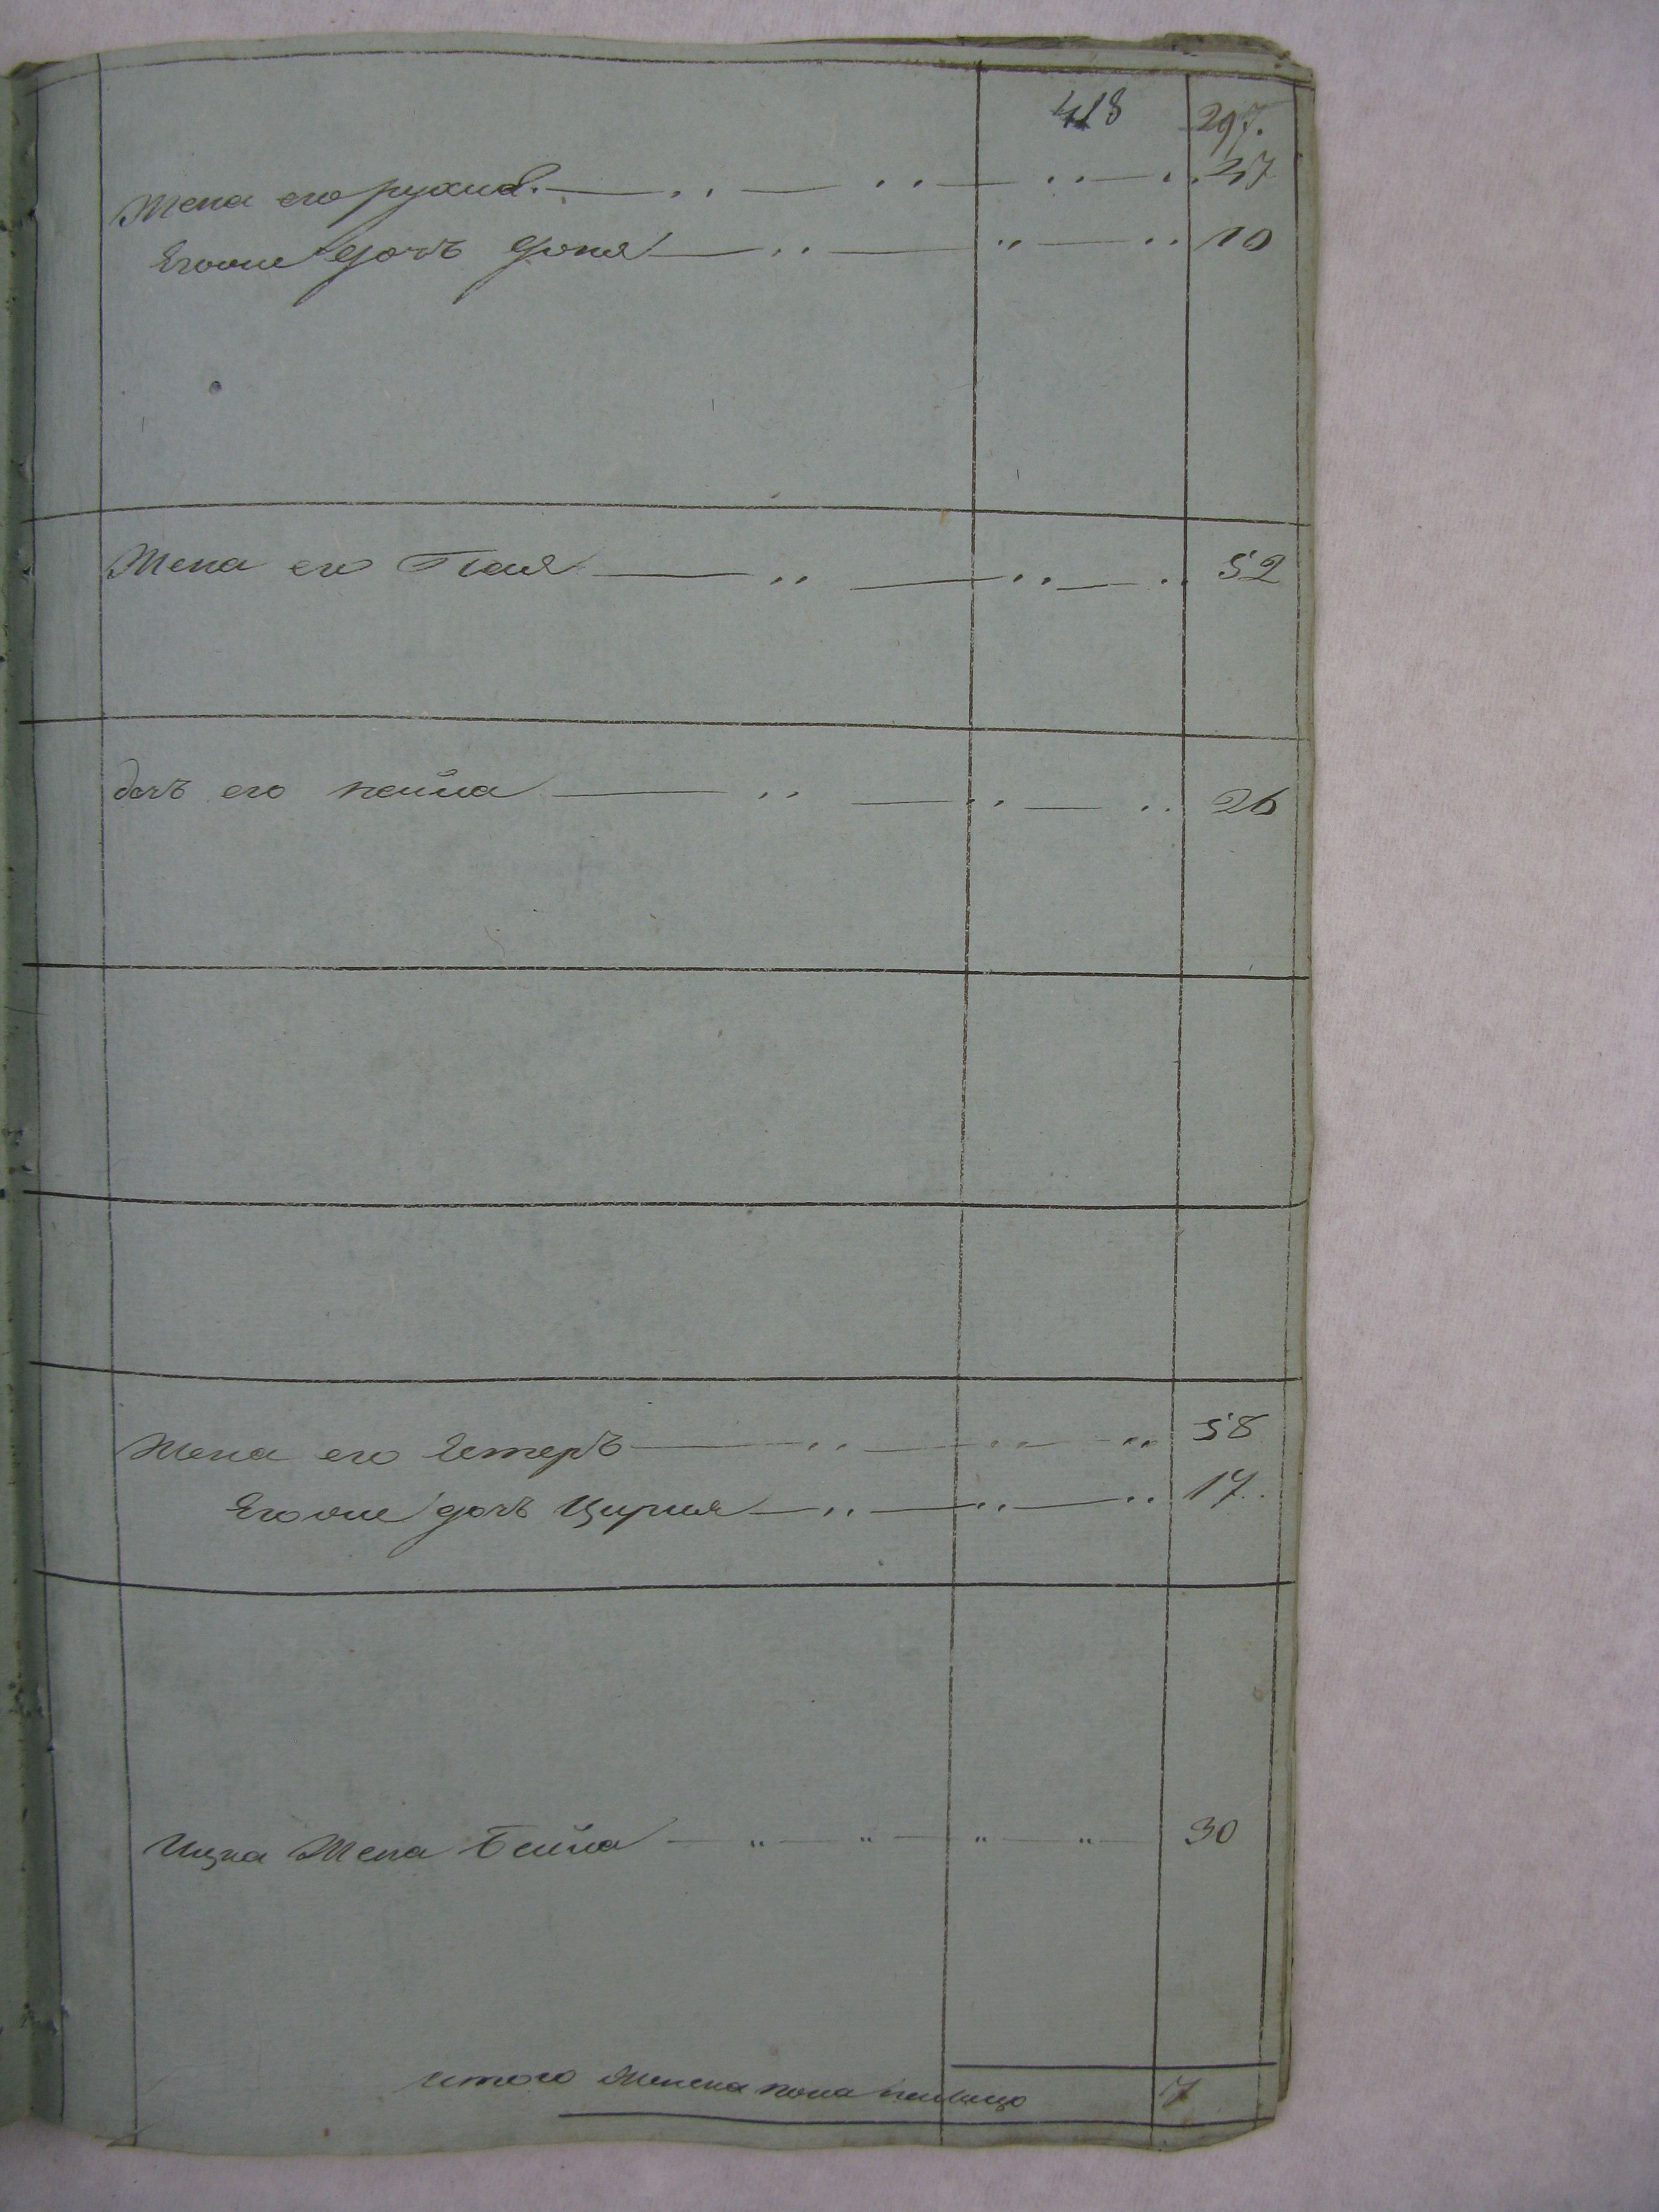 418 297.
Жена его рухля 37
Егоже дочь Фоня 10
Жена его Гтля 52
дочь его пейла 26
Жена его Эстеръ 58
Егоже дочь Цирля 17.
Ицка Жена Бейла 30
итого Женска пола на лицо 7